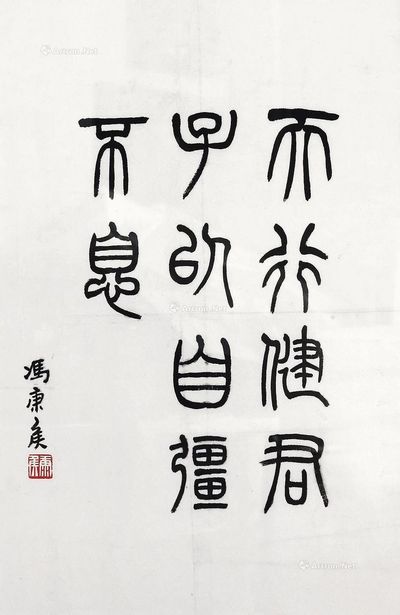 天行健君
子以自彊
不息
馮康侯
Artron.Net
Artron.Net
Artron.Net